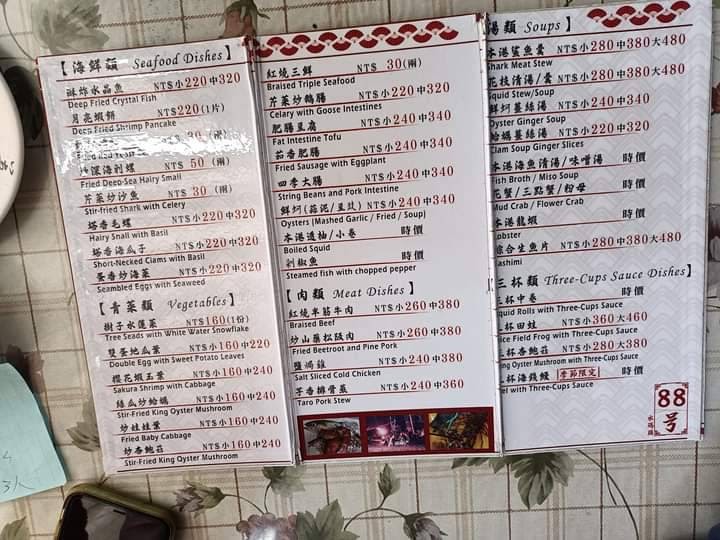 【海鮮類 Seafood Dishes】
酥炸水晶魚 NT$小220中320
Deep Fried Crystal Fish
月亮蝦餅 NT$220(1片)
Deep Fried Shrimp Pancake
30
NT$ 50(兩)
Fried Deco-Sea Hairy Small
芹菜炒沙魚 NT$ 30 (兩)
Stir-fried Shark with Celery
塔香毛螺 NT$小220中320
Hairy Snall with Basil
塔香海瓜子 NT$小220中320
Short-Necked Ciams with Basil
蛋香炒海菜 NT$小220中320
Seambled Eggs with Seaweed
【青菜類 Vegetables】
樹子水蓮菜 NT$160(1份)
Tree Seads with White Water Snowflake
雙蛋地瓜葉 NT$小160中220
Double Egg with Sweet Potato Leaves
櫻花蝦玉葉 NT$小160中240
Sakura Shrimp with Cabbage
絲瓜炒蛤蠣 NT$小160中240
Stir-Fried King Oyster Mushroom
炒娃娃菜 NT$小160中240
Fried Baby Cabbage
炒杏鮑菇 NT$小160中240
Stir-Fried King Oyster Mushroom
紅燒三鮮 NT$ 30(兩)
Braised Triple Seafood
芹菜炒鵝腸 NT$小220中320
Celary with Goose Intestines
肥腸豆腐 NT$小240中340
Fat Intestine Tofu
茄香肥腸 NT$小240中340
Fried Sausage with Eggplant
四季大腸 NT$小240中340
String Beans and Pork Intestine
鮮蚵(蒜泥/豆豉) NT$小240中340
Oysters (Mashed Garlic / Fried / Soup)
本港透抽/小卷 時價
Boiled Squid
剁椒魚 時價
Steamed fish with chopped pepper
【肉類 Meat Dishes】
紅燒半筋牛肉 NT$小260中380
Braised Beef
炒山藥松阪肉 NT$小260中380
Fried Beetroot and Pine Pork
鹽焗雞 NT$小240中340
Salt Sliced Cold Chicken
芋香排骨蒸 NT$小240中360
Taro Pork Stew
湯類 Soups】
本港鯊魚羹 NT$小280中380大480
Shark Meat Stew
花枝清湯/羹 NT$小280中380大480
Squid Stew/Soup
鮮蚵薑絲湯 NT$小240中340
Oyster Ginger Soup
蛤蠣薑絲湯 NT$小220中320
Clam Soup Ginger Slices
本港海魚清湯/味噌湯 時價
Fish Broth / Miso Soup
花蟹/三點蟹/粉母 時價
Mud Crab / Flower Crab
本港龍蝦 時價
Lobster
綜合生魚片 NT$小280中380大480
Sashimi
三杯類 Three-Cups Sauce Dishes】
三杯中卷 時價
Squid Rolls with Three-Cups Sauce
三杯田蛙 NT$小360中460
Rice Field Frog with Three-Cups Sauce
三杯杏鮑菇 NT$小280中380
King Oyster Mushroom with Three-Cups Sauce
三杯海錢鰻 季節限定 時價
Eel with Three-Cups Sauce
88
号